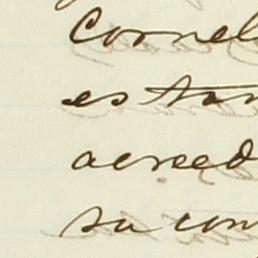 Cornel
es tan
acreed
su con